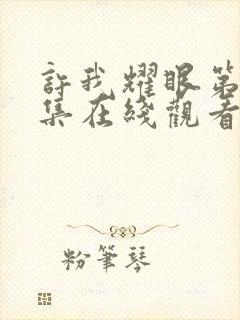 許我耀眼第
集在綫觀看
粉筆琴